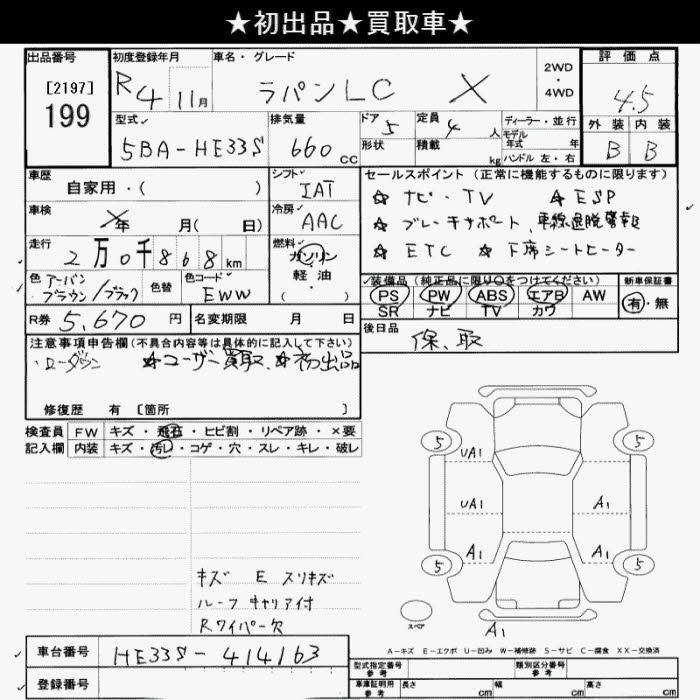 ★初出品★買取車★
出品番号 初度登録年月 車名・グレード 評価点
[2197] R4 11月 ラパンLC X 2WD・4WD 4.5
199
型式 排気量 ドア 5 定員 4人 ディーラー・並行 外装 内装
5BA-HE33S 660cc 形状 積載 kg モデル年式 年 ハンドル 左・右 B B
車歴 シフト セールスポイント(正常に機能するものに限ります)
自家用・( ) IAT ☆ナビ・TV ☆ESP
車検 冷房 ☆ブレーキサポート、車線逸脱警報
X年 月(日) AAC ☆ETC ☆下席シートヒーター
走行 燃料
2万0千868km ガソリン
軽油
・( )
色 アーバンブラウン/ブラック 色替 色コード EWW
装備品(純正品に限り○をつけてください) 新車保証書
PS PW ABS エアB AW 有・無
SR ナビ TV カワ
R券 5,670円 名変期限 月 日
後日品 保、取
注意事項申告欄(不具合内容等は具体的に記入して下さい)
・ローダウン ☆ユーザー買取、☆初出品
修復歴 有 [箇所 ]
検査員 FW キズ・飛石・ヒビ割・リペア跡・×要
記入欄 内装 キズ・汚れ・コゲ・穴・スレ・キレ・破レ
5 5
UA1
UA1 A1
A1 A1
5 5
スペア
A1
キズ E スリキズ
ルーフキャリア付
Rワイパー欠
A-キズ E-エクボ U-凹み W-補修跡 S-サビ C-腐食 XX-交換済
車台番号 HE33S-414163
登録番号
型式指定番号 参考 類別区分番号 参考
車庫証明用 参考 長さ cm 幅 cm 高さ cm